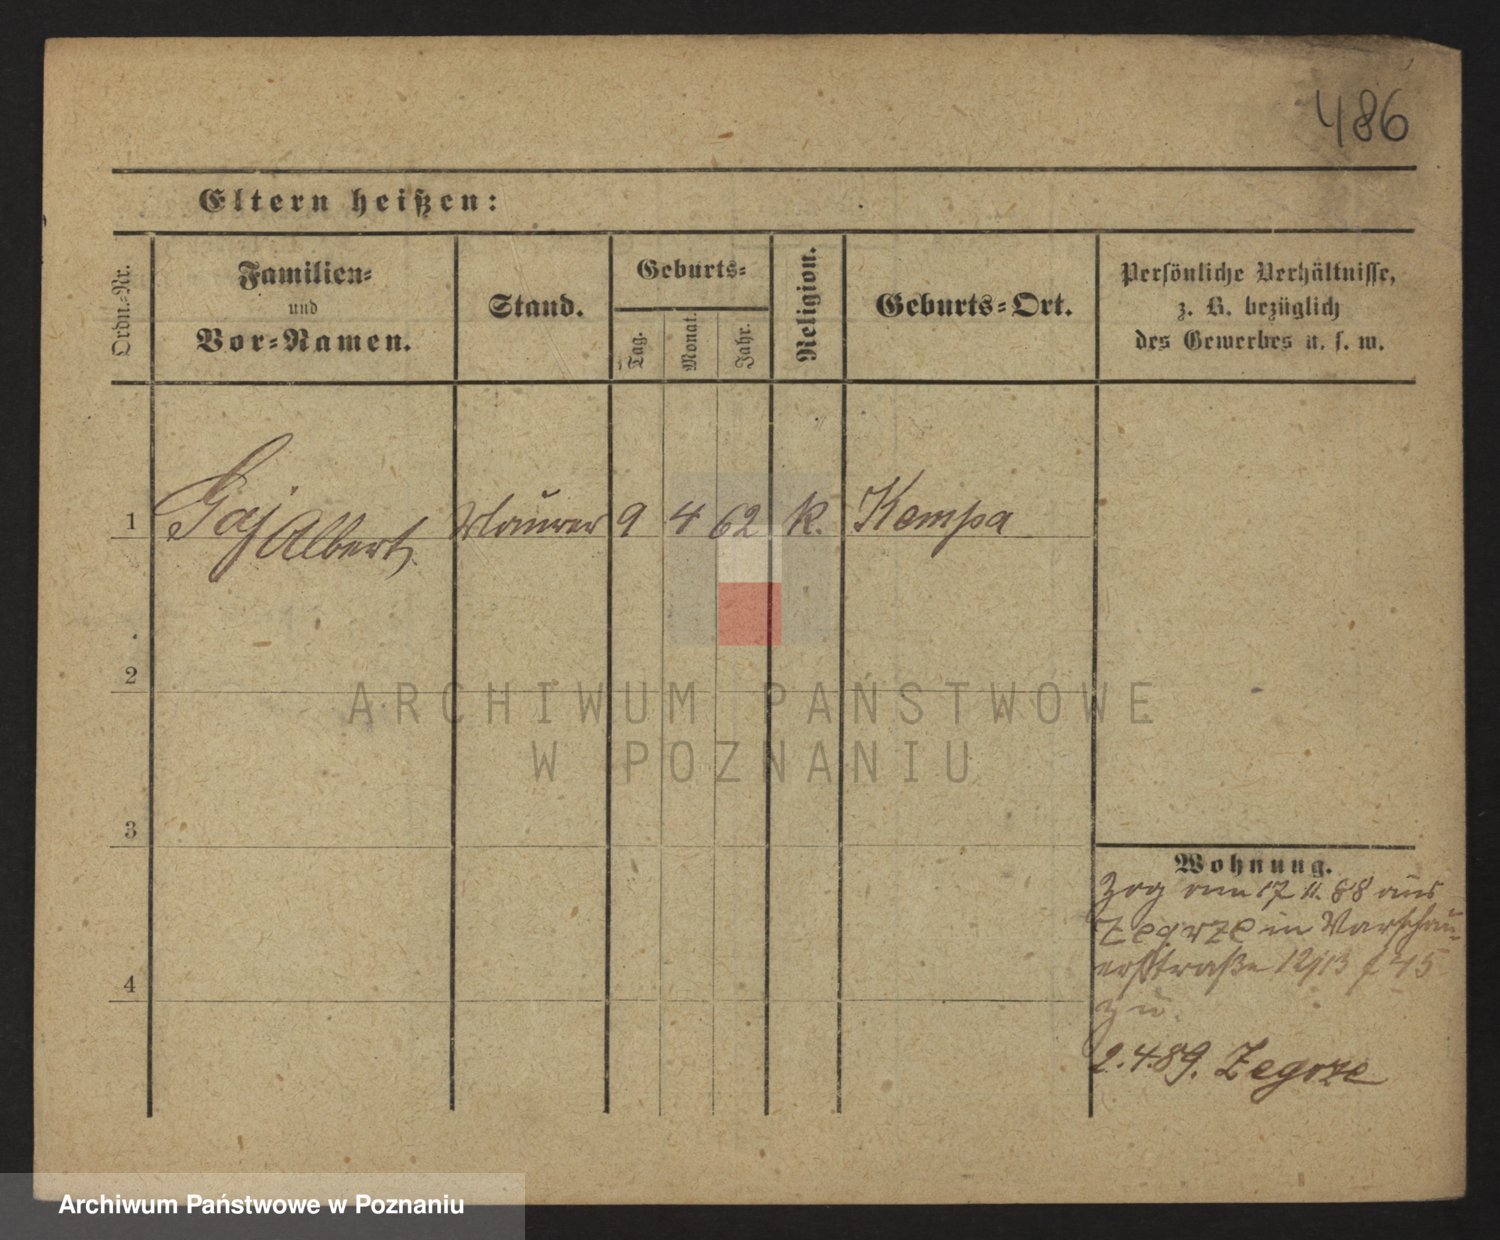 486
Eltern heißen:
Ordn.-Nr.
Familien-
und
Vor-Namen.
Stand.
Geburts-
Tag.
Monat.
Jahr.
Religion.
Geburts-Ort.
Persönliche Verhältnisse,
z. B. bezüglich
des Gewerbes u. s. w.
1 Gaj Albert Maurer 9 4 62 k. Kempa
2
3
4
Wohnung.
Zog am 17 11. 88 aus
Zegrze in Warschau-
erstraße 12/13
zu.
2.4.89. Zegrze
ARCHIWUM PAŃSTWOWE
W POZNANIU
Archiwum Państwowe w Poznaniu